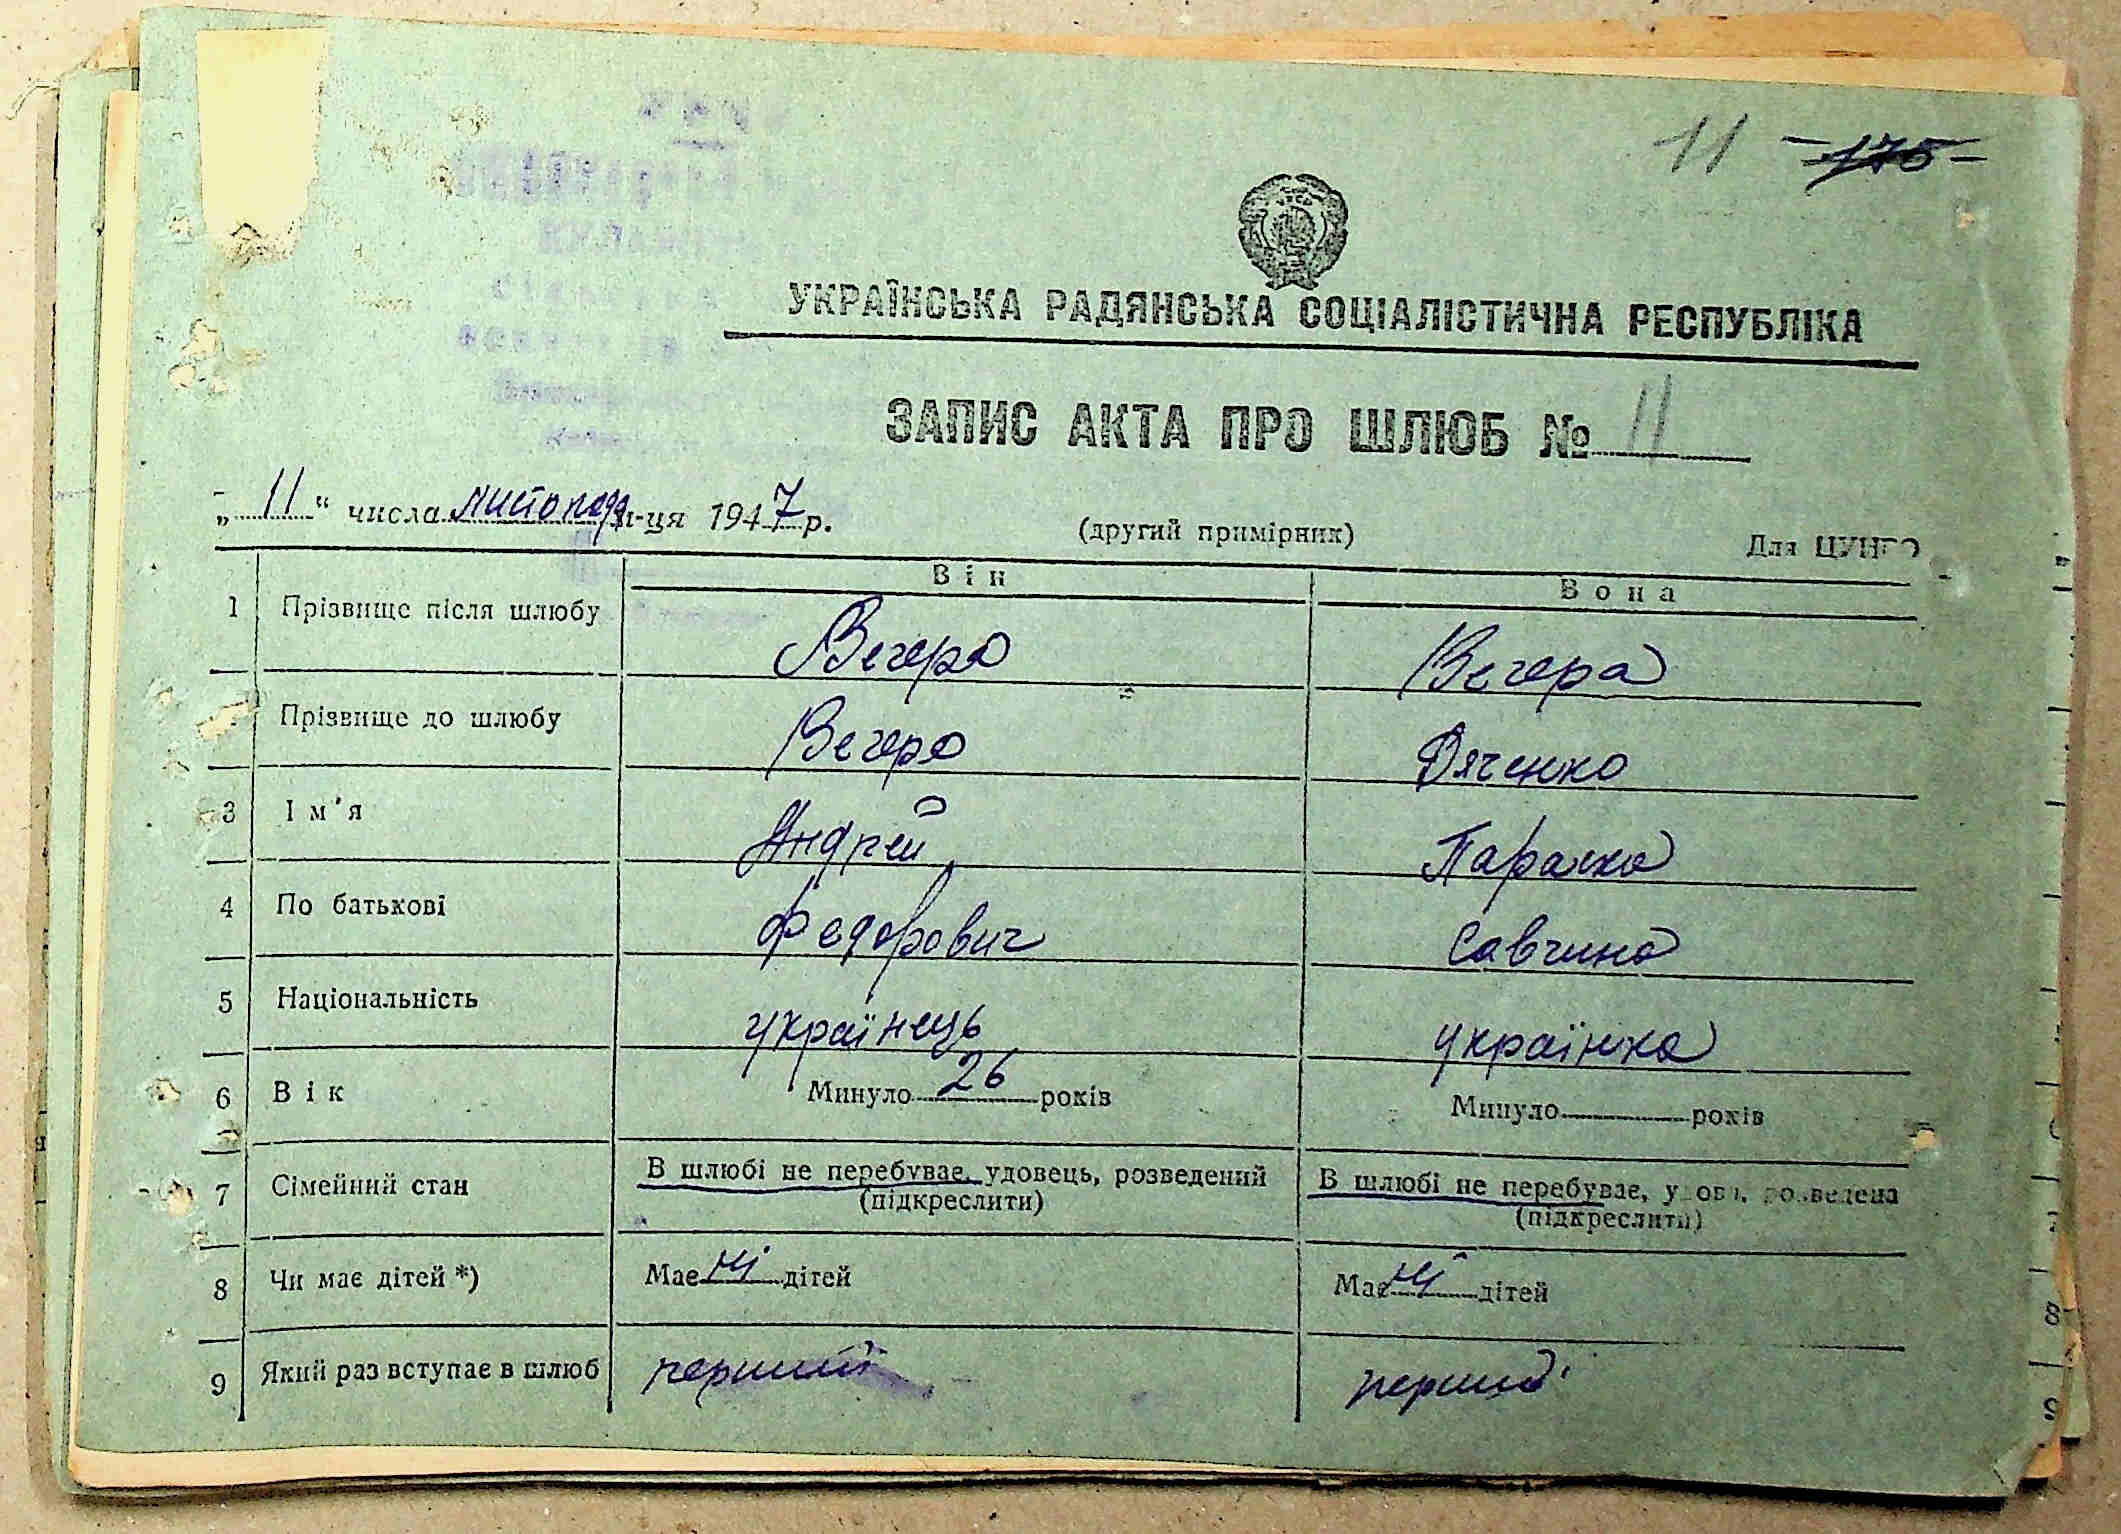 11 -175-
УКРАЇНСЬКА РАДЯНСЬКА СОЦІАЛІСТИЧНА РЕСПУБЛІКА
ЗАПИС АКТА ПРО ШЛЮБ № 11
„11“ числа листопад м-ця 1947 р.
(другий примірник)
Для
Він Вона
1 Прізвище після шлюбу Вечера Вечера
Прізвище до шлюбу Вечера Дяченко
3 Ім'я Андрей Параска
4 По батькові Федорович Савчина
5 Національність українець українка
6 Вік Минуло 26 років Минуло років
7 Сімейний стан В шлюбі не перебуває, удовець, розведений В шлюбі не перебуває, удова, розведена
(підкреслити) (підкреслити)
8 Чи має дітей *) Має ні дітей Має ні дітей
9 Який раз вступає в шлюб перший перший
8
9